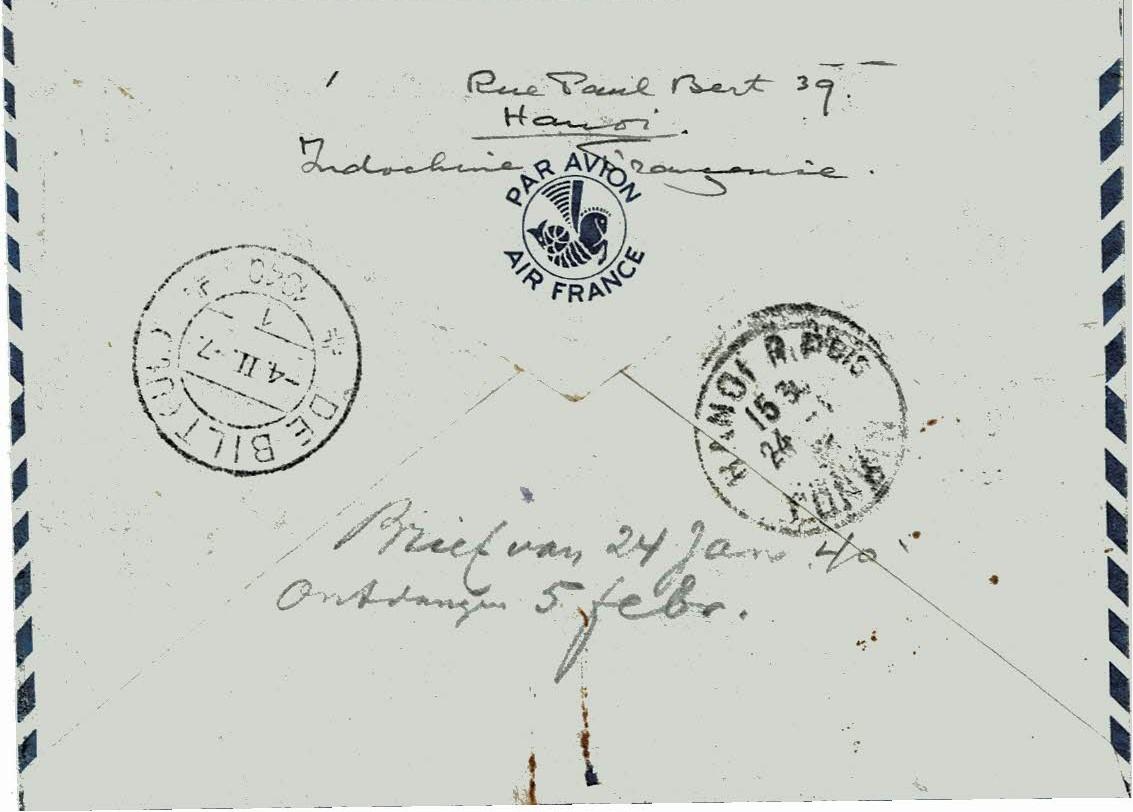 Rue Paul Bert 39.
Hanoi.
Indochine Française.
PAR AVION
AIR FRANCE
1940
1
-4.II.-7.
DE BILT
HANOI R.P.
15 30
24
Brief van 24 Jan. 40
Ontvangen 5 febr.